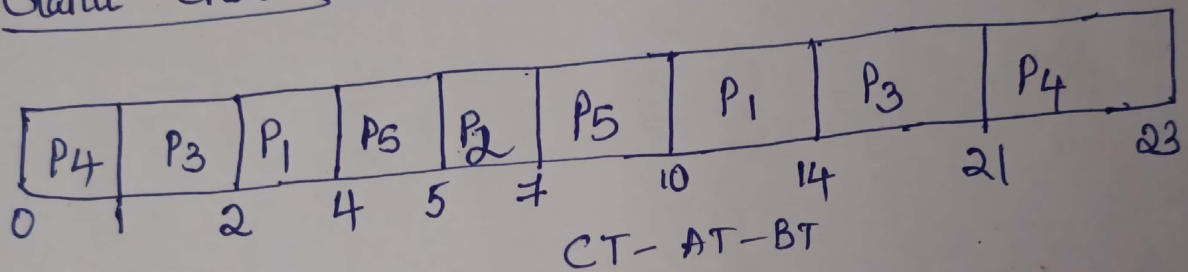 P4 P3 P1 P5 P2 P5 P1 P3 P4
0 1 2 4 5 7 10 14 21 23
CT - AT - BT